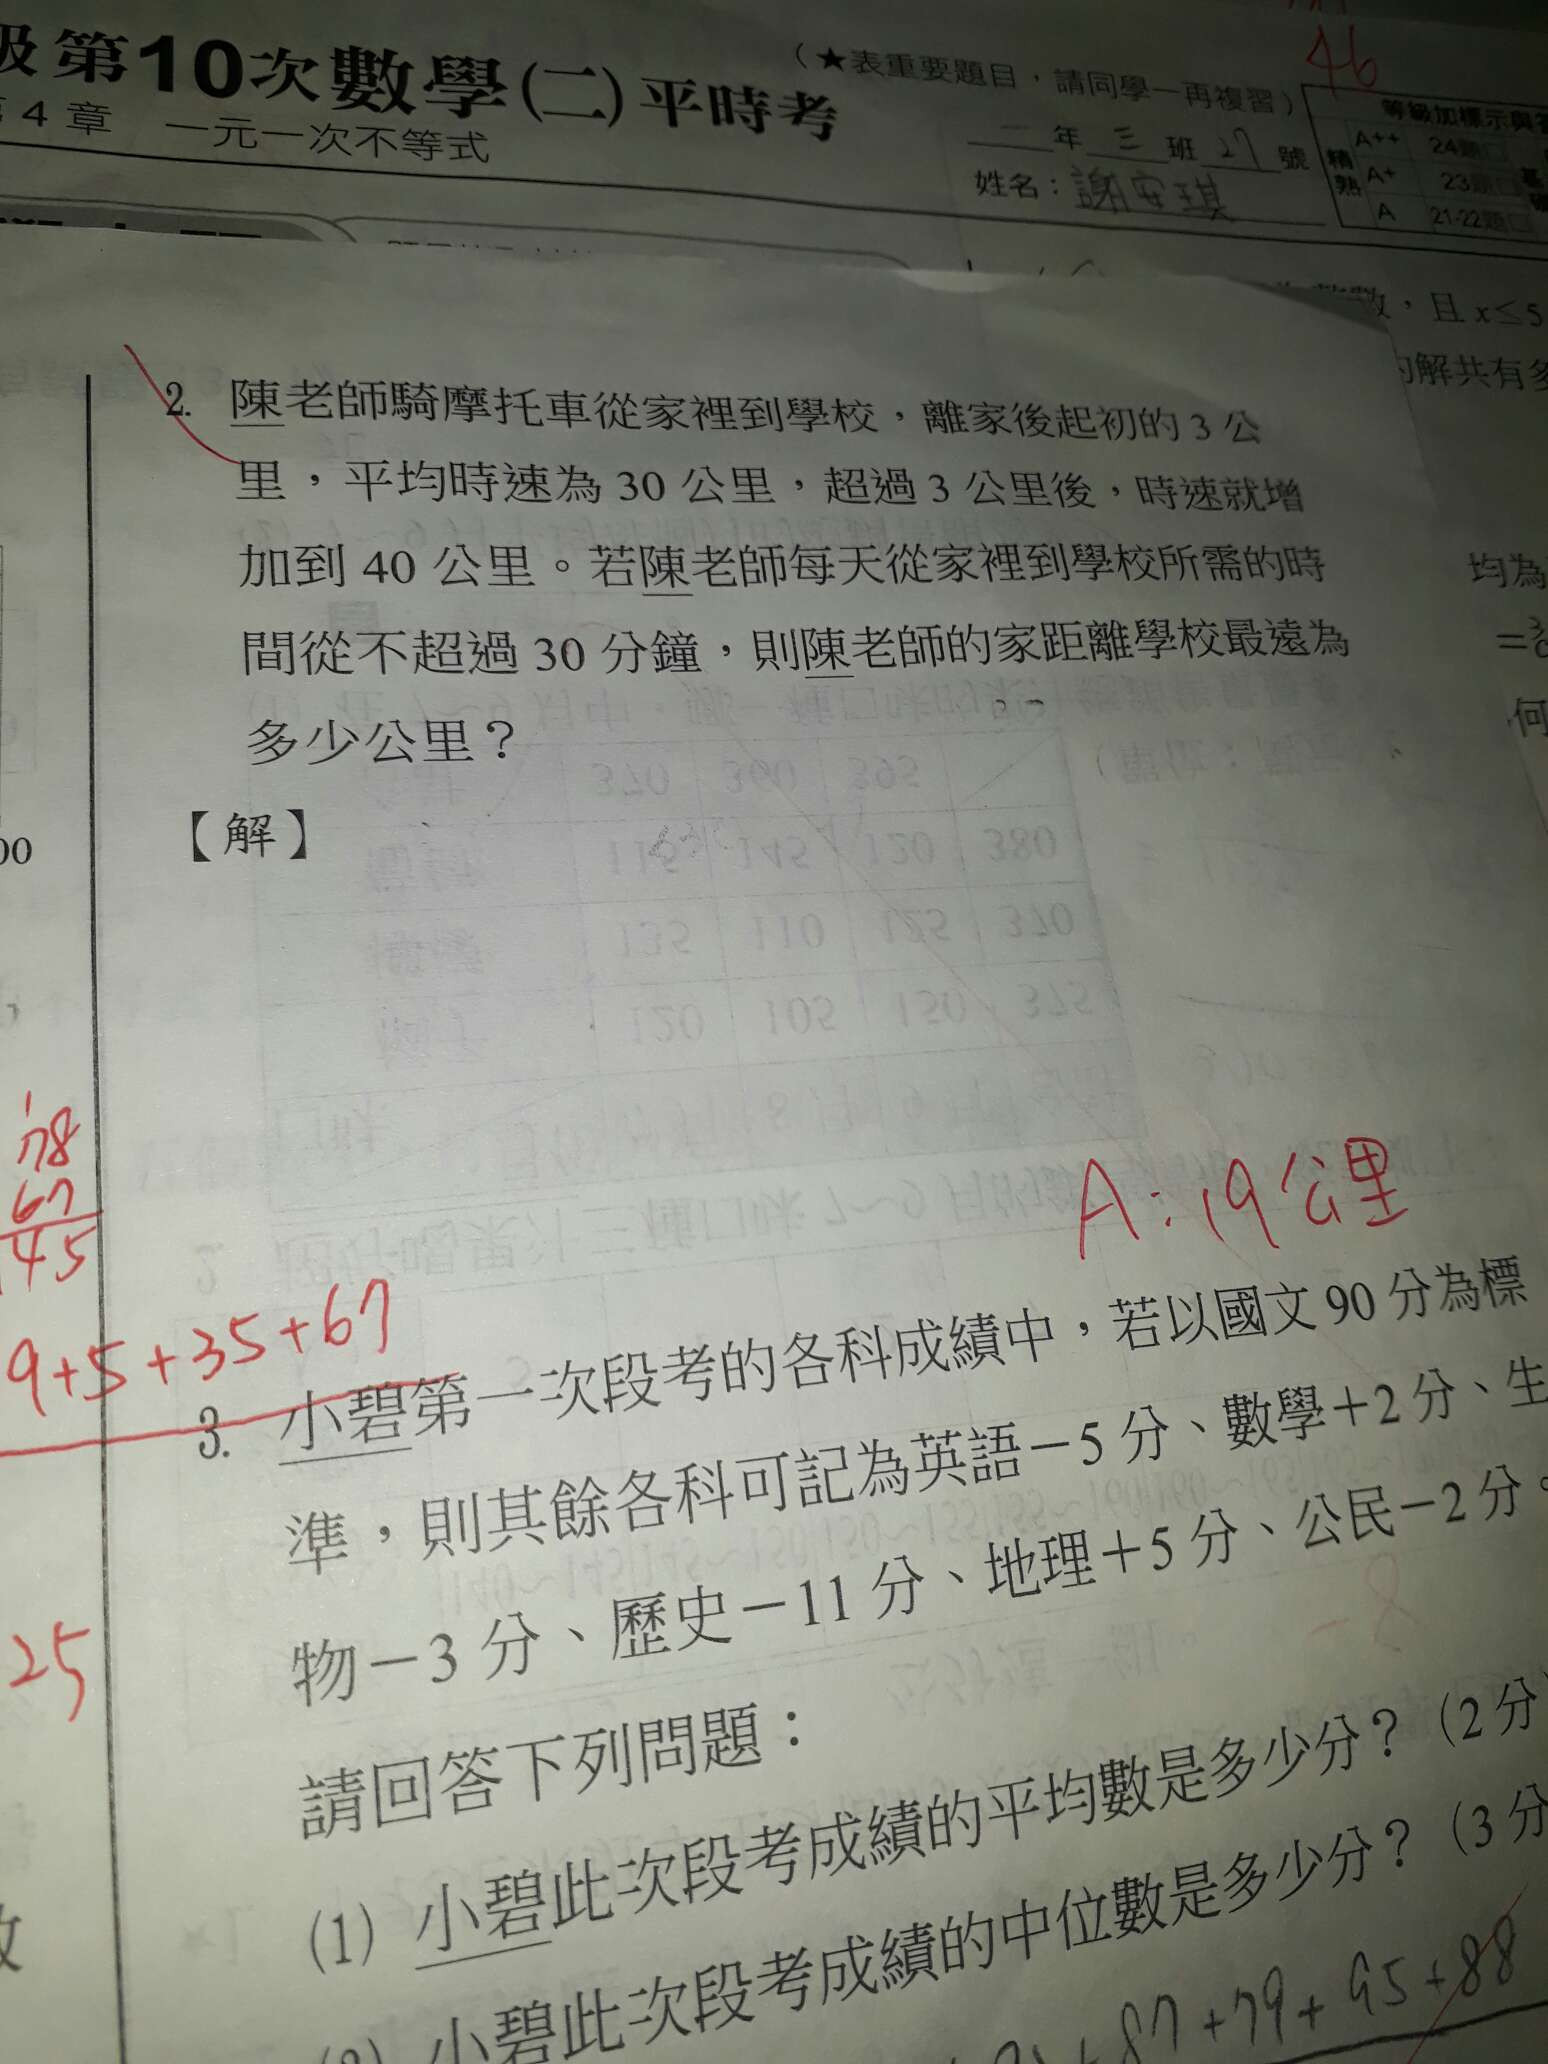 級第10次數學(二)平時考
第4章 一元一次不等式
(★表重要題目,請同學一再複習)
46
二年三班27號
姓名:謝安琪
等級加標示與答
精熟
A++ 24題□
A+ 23題□
A 21-22題□
數,且x≤5
的解共有多
均為
何
2. 陳老師騎摩托車從家裡到學校,離家後起初的3公
里,平均時速為30公里,超過3公里後,時速就增
加到40公里。若陳老師每天從家裡到學校所需的時
間從不超過30分鐘,則陳老師的家距離學校最遠為
多少公里?
【解】
00
A:19公里
78
67
45
9+5+35+67
25
3. 小碧第一次段考的各科成績中,若以國文90分為標
準,則其餘各科可記為英語-5分、數學+2分、生
物-3分、歷史-11分、地理+5分、公民-2分。
請回答下列問題:
(1) 小碧此次段考成績的平均數是多少分?(2分)
(2) 小碧此次段考成績的中位數是多少分?(3分
+87+79+95+88